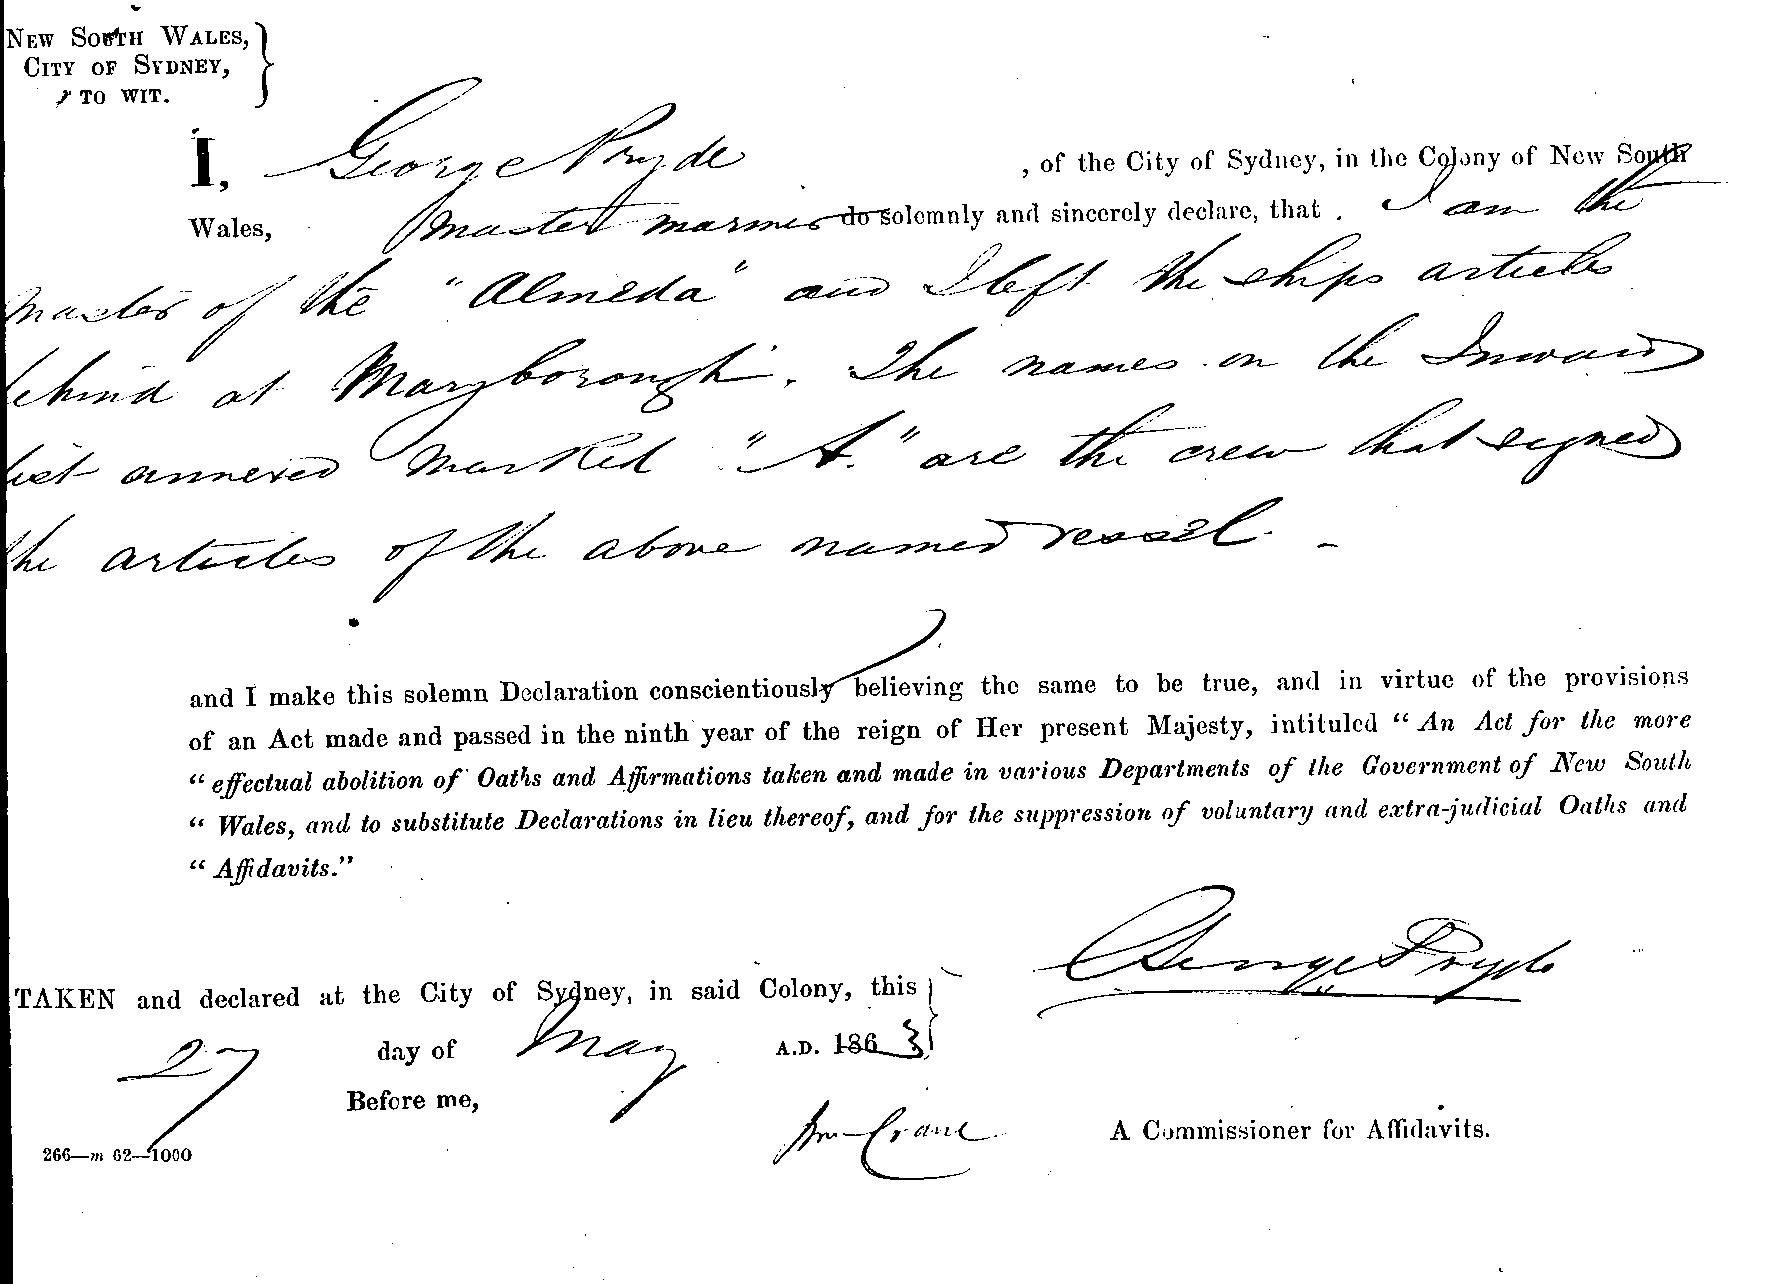 NEW SOUTH WALES,
CITY OF SYDNEY,
TO WIT.
I, George Pryde, of the City of Sydney, in the Colony of New South
Wales, master mariner do solemnly and sincerely declare, that I am the
master of the "Almeda" and I left the ships articles
behind at Maryborough. The names on the Inward
list annexed marked "A." are the crew that signed
the articles of the above named vessel. –
and I make this solemn Declaration conscientiously believing the same to be true, and in virtue of the provisions
of an Act made and passed in the ninth year of the reign of Her present Majesty, intituled “ An Act for the more
“ effectual abolition of Oaths and Affirmations taken and made in various Departments of the Government of New South
“ Wales, and to substitute Declarations in lieu thereof, and for the suppression of voluntary and extra-judicial Oaths and
“ Affidavits.”
George Pryde
TAKEN and declared at the City of Sydney, in said Colony, this
27 day of May A.D. 1863
Before me,
Wm Crane A Commissioner for Affidavits.
266—m 62—1000